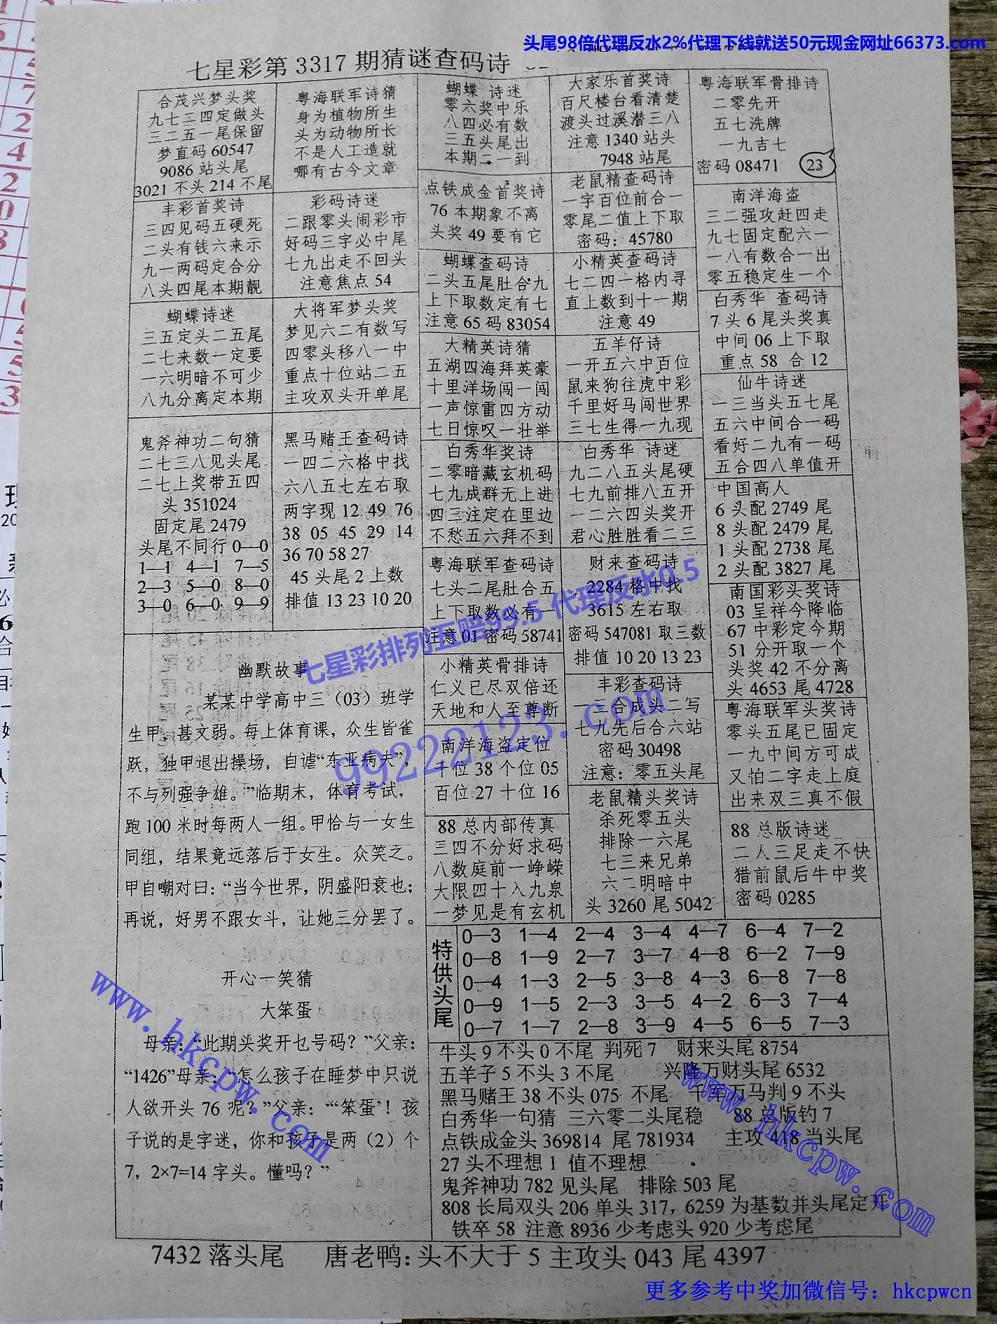 头尾98倍代理反水2%代理下线就送50元现金网址66373.com
七星彩第3317期猜谜查码诗
合茂兴梦头奖
九七二四定做头
三二五一尾保留
梦直码60547
9086站头尾
3021不头214不尾
粤海联军诗猜
身为植物所生
头为动物所长
不是人工造就
哪有古今文章
蝴蝶 诗迷
零六奖中乐
八四必有数
三五头尾出
本期二一到
大家乐首奖诗
百尺楼台看清楚
渡头过溪潜三八
注意1340站头
7948站尾
粤海联军骨排诗
二零先开
五七洗牌
一九吉七
密码08471
23
丰彩首奖诗
三四见码五硬死
二头有钱六来示
九一两码定合分
八头四尾本期靓
彩码诗迷
二跟零头闹彩市
好码三字必中尾
七九出走不回头
注意焦点54
点铁成金首奖诗
76本期象不离
头奖49要有它
老鼠精查码诗
一字百位前合一
零尾二值上下取
密码：45780
南洋海盗
三二强攻赶四走
九七固定配六一
一八有数合一出
零五稳定生一个
蝴蝶查码诗
二头五尾肚合九
上下取数定有七
注意65码83054
小精英查码诗
七二四一格内寻
直上数到十一期
注意49
白秀华 查码诗
7头6尾头奖真
中间06上下取
重点58 合12
蝴蝶诗迷
三五定头二五尾
二七来数一定要
一六明暗不可少
八九分离定本期
大将军梦头奖
梦见六二有数写
四零头移八一中
重点十位站二五
主攻双头开单尾
大精英诗猜
五湖四海拜英豪
十里洋场闯一闯
一声惊雷四方动
七日惊叹一壮举
五羊仔诗
一开五六中百位
鼠来狗往虎中彩
千里好马闯世界
三七生得一九现
仙牛诗迷
一三当头五七尾
五六中间合一码
看好二九有一码
五合四八单值开
鬼斧神功二句猜
二七三八见头尾
二七上奖带五四
头351024
固定尾2479
头尾不同行0—0
1—1 4—1 7—5
2—3 5—0 8—0
3—0 6—0 9—9
黑马赌王查码诗
一四二六格中找
六八五七左右取
两字现12 49 76
38 05 45 29 14
36 70 58 27
45头尾2上数
排值13 23 10 20
白秀华奖诗
二零暗藏玄机码
七九成群无上进
四三注定在里边
不愁五六拜不到
白秀华 诗迷
九二八五头尾硬
七九前排八五开
一二六四头奖开
君心胜胜看二三
中国高人
6头配2749尾
8头配2479尾
1头配2738尾
2头配3827尾
粤海联军查码诗
七头二尾肚合五
上下取数必有一
注意01密码58741
财来查码诗
2284格中找
3615左右取
密码547081取三数
排值10 20 13 23
南国彩头奖诗
03呈祥今降临
67中彩定今期
51分开取一个
头奖42不分离
头4653尾4728
七星彩排列五赔99.5 代理反水0.5
99222123.com
幽默故事
某某中学高中三（03）班学
生甲，甚文弱。每上体育课，众生皆雀
跃，独甲退出操场，自谑“东亚病夫”，
不与列强争雄。”临期末，体育考试，
跑100米时每两人一组。甲恰与一女生
同组，结果竟远落后于女生。众笑之。
甲自嘲对曰：“当今世界，阴盛阳衰也；
再说，好男不跟女斗，让她三分罢了。
小精英骨排诗
仁义已尽双倍还
天地和人至尊断
丰彩查码诗
一三合成头二写
七九先后合六站
密码30498
注意：零五头尾
粤海联军头奖诗
零头五尾已固定
一九中间方可成
又怕二字走上庭
出来双三真不假
南洋海盗定位
千位38个位05
百位27十位16
老鼠精头奖诗
杀死零五头
排除一六尾
七三来兄弟
六二明暗中
头3260尾5042
88总内部传真
三四不分好求码
八数庭前一峥嵘
大限四十入九泉
一梦见是有玄机
88总版诗迷
二人三足走不快
猎前鼠后牛中奖
密码0285
特供头尾
0—3 1—4 2—4 3—4 4—7 6—4 7—2
0—8 1—9 2—7 3—7 4—8 6—2 7—9
0—4 1—3 2—5 3—8 4—3 6—8 7—8
0—9 1—5 2—3 3—5 4—2 6—3 7—4
0—7 1—7 2—8 3—9 4—5 6—5 7—3
开心一笑猜
大笨蛋
母亲：“此期头奖开乜号码？”父亲：
“1426”母亲：“怎么孩子在睡梦中只说
人欲开头76呢？”父亲：“‘笨蛋’！孩
子说的是字迷，你和孩子是两（2）个
7，2×7=14字头。懂吗？”
牛头9不头0不尾 判死7 财来头尾8754
五羊子5不头3不尾 兴隆万财头尾6532
黑马赌王38不头075不尾 千军万马判9不头
白秀华一句猜 三六零二头尾稳 88总版钓7
点铁成金头369814 尾781934 主攻418当头尾
27头不理想1值不理想
鬼斧神功782见头尾 排除503尾
808长局双头206单头317，6259为基数并头尾定开
铁卒58 注意8936少考虑头920少考虑尾
7432落头尾 唐老鸭：头不大于5主攻头043尾4397
www.hkcpw.com
www.hkcpw.com
更多参考中奖加微信号：hkcpwcn